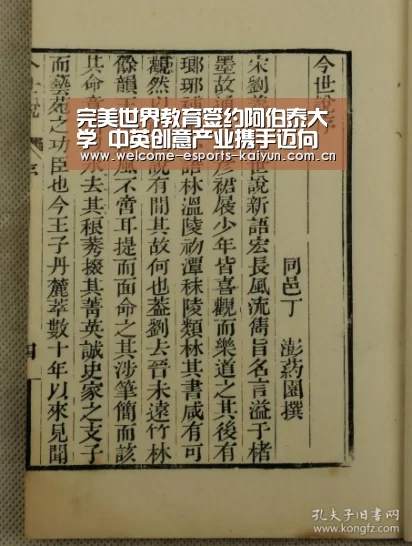 完美世界教育签约阿伯泰大
学 中英创意产业携手迈向
www.welcome-esports-kaiyun.com.cn
今世說
同邑丁 澎藥園撰
宋劉 世說新語宏長風流雋旨名言溢于楮
墨故通 彥裙屐少年皆喜觀而樂道之其後有
瑯琊補 語林溫陵初潭秣陵類林其書咸有可
觀然以 說有閒其故何也蓋劉去晉未遠竹林
餘韻王 風不啻耳提而面命之其涉筆簡而該
其命意 永去其稂莠掇其菁英誠史家之支子
而藝苑之功臣也今王子丹麓萃數十年以來見聞
四
孔夫子旧书网
www.kongfz.com